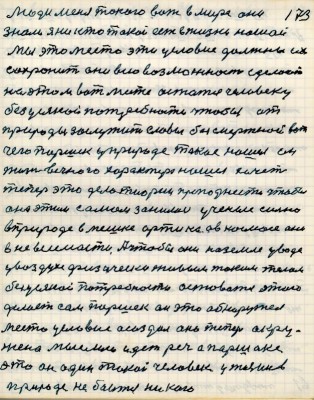 Люди меня такого вот в мире они 173
знали я кто такой есть в жизни нашей
Мы это место это условие должны их
сохранить они всю возможность сделать
на этом вот месте остатся человеку
без всякой потребности чтобы от
природы заслужить славы бессмертной вот
чего Паршек у природе такое нашел он
жит вечного характера нашел хочет
теперь это дело теории преподнести чтобы
она этим самом занялас ученые сильно
в природе в технике
в невесомости А чтобы они на земле у воде
у воздухе физически живым таким телом
без всякой потребности остоватся этого
делает сам Паршек он это обнаружел
место условие создал она теперь окру-
жена мыслью идет речь а паршаке
это он один такой человек у жизни в
природе не боится никого